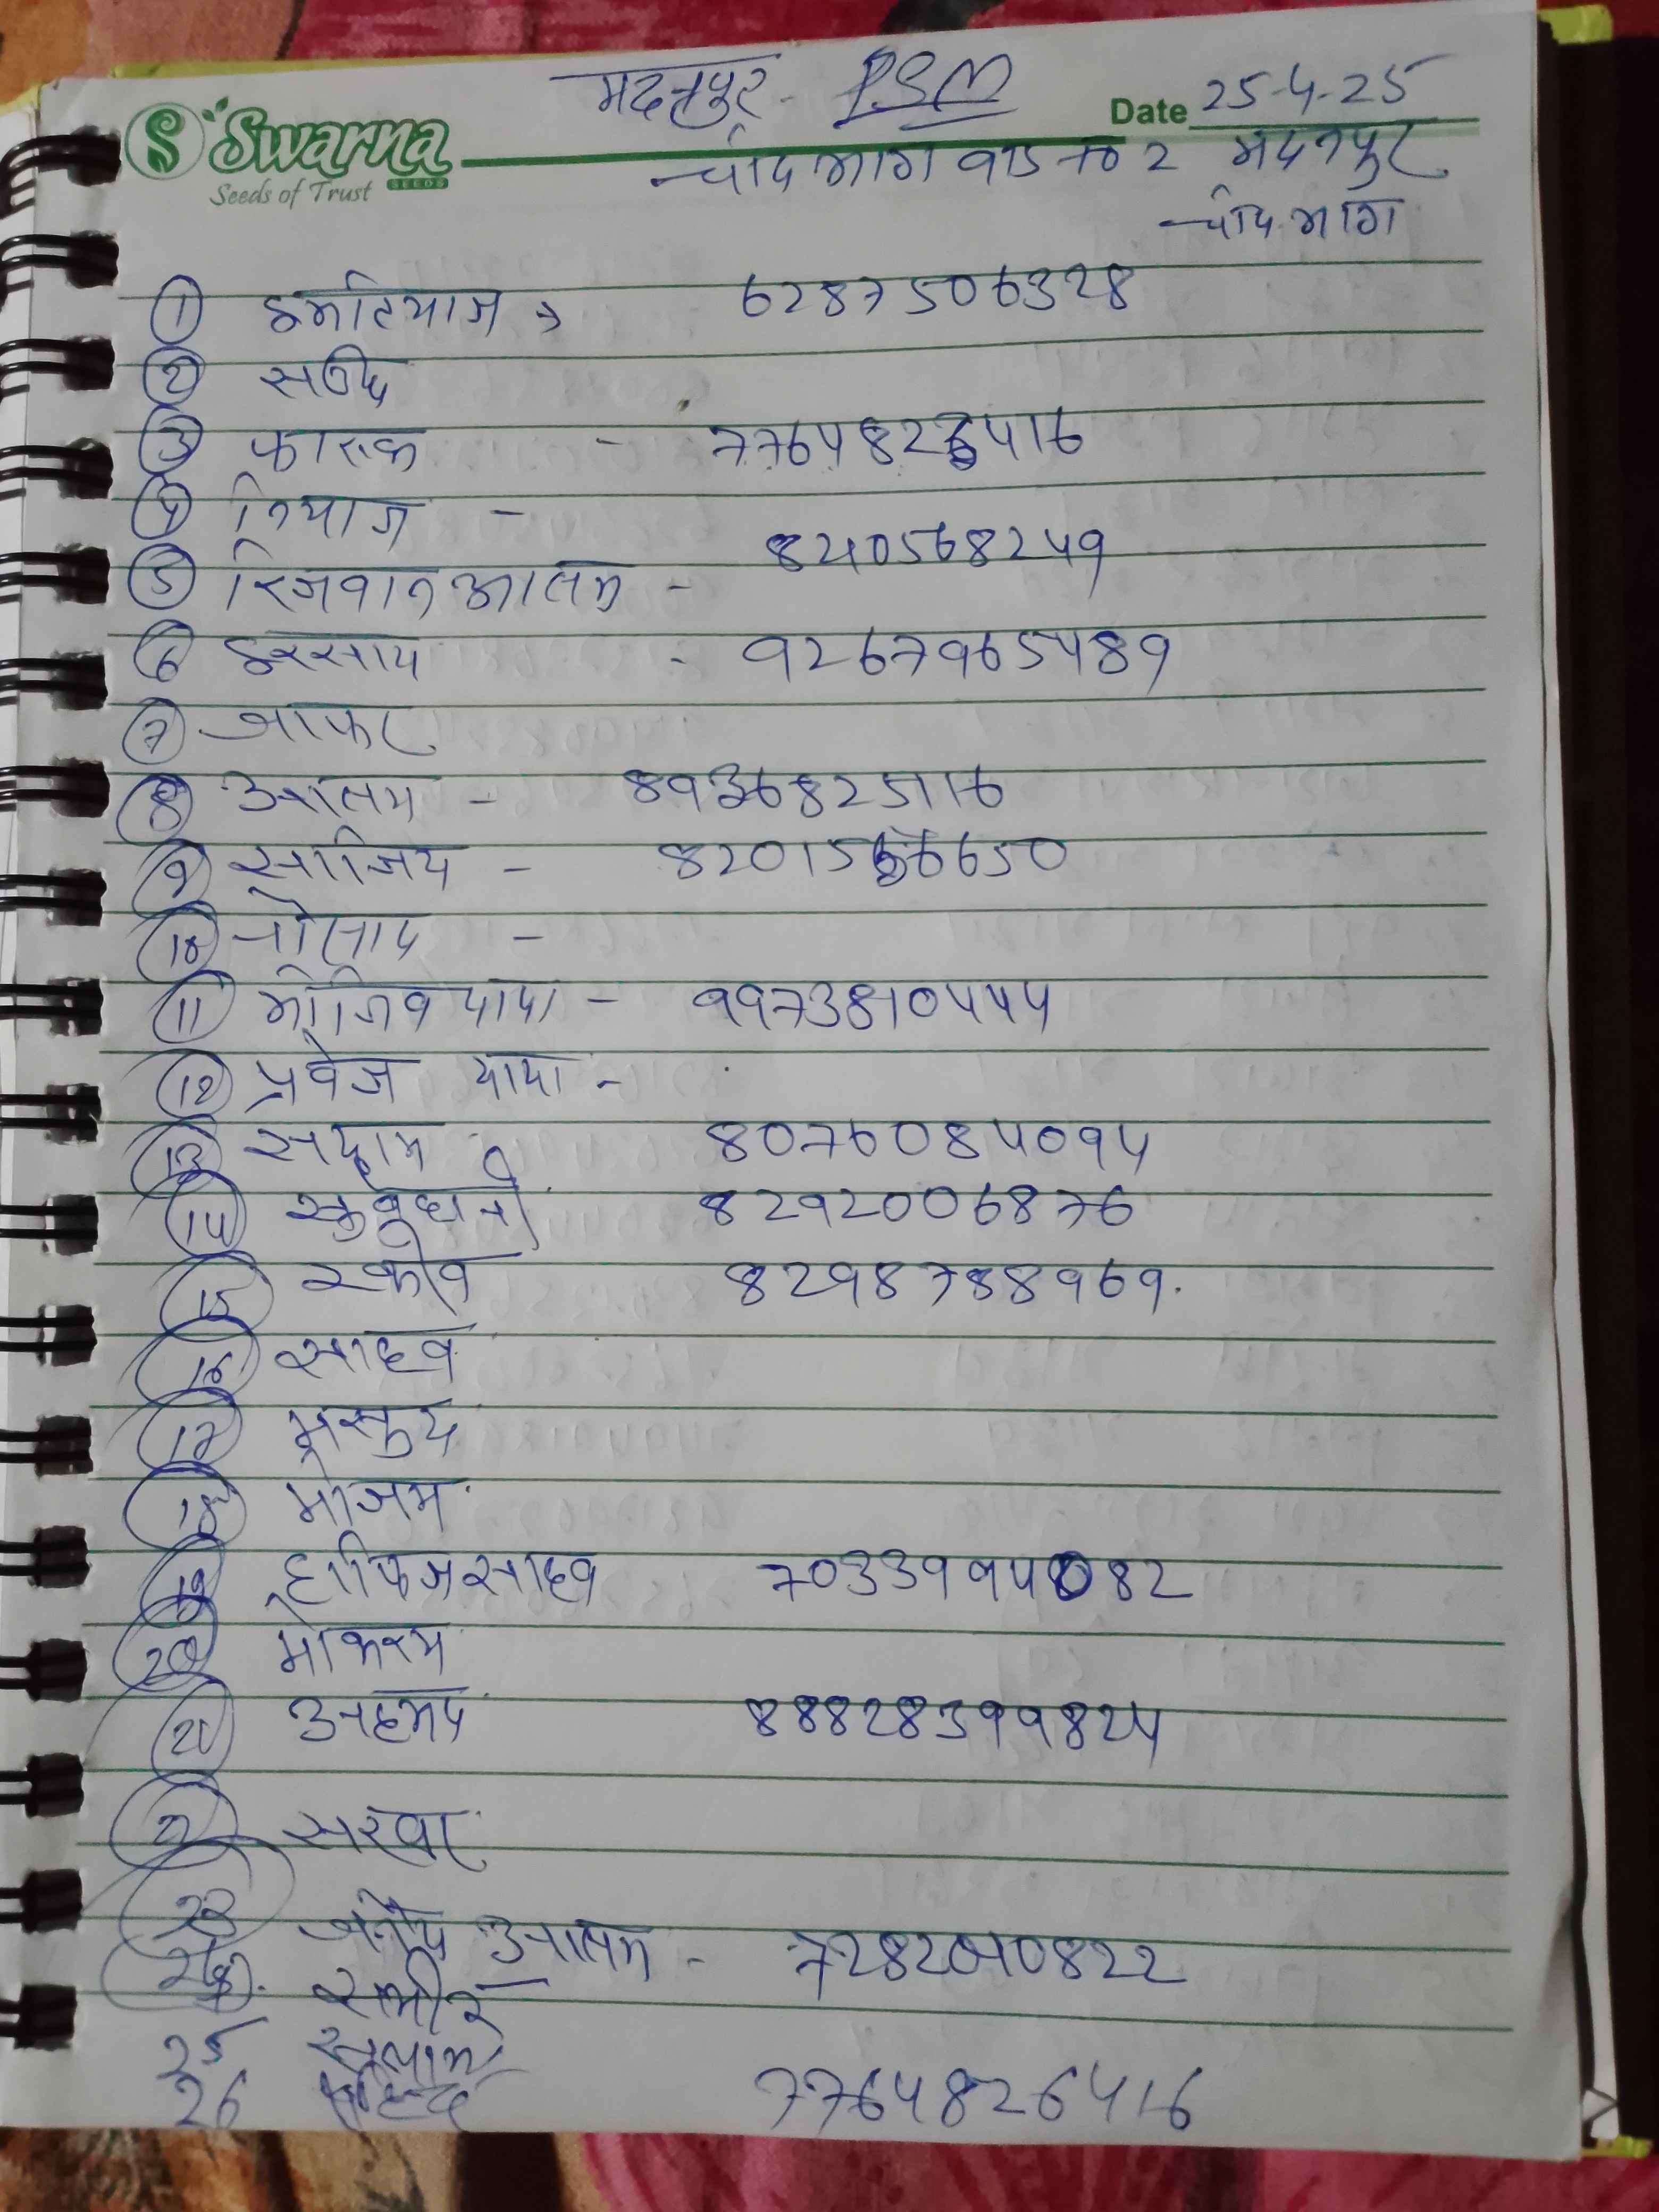 मदनपुर - PSM
Swarna
SEEDS
Seeds of Trust
Date 25-4-25
चांदमारी वार्ड न० 2 मदनपुर
① इमतियाज → 6287506328
②
③ फारुक - 7764826416
④ नियाज -
⑤ रिजवान आलम - 8210568249
⑥ इरसाद - 9267965489
⑦ जाफर
⑧ आलम - 8936825116
⑨ साजिद - 8201566650
⑩ नौसाद -
⑪ दादा - 9973810444
⑫ प्रवेज दादा -
⑬ सद्दाम 8076084094
⑭ 8292006876
⑮ रकीव 8298788969.
⑯ साहव
⑰ मसुद
⑱ मोजम
⑲ हाफिज साहव 7033994082
⑳ मोकरम
㉑ अहमद 88828399824
सरवर
23 जुनैद आलम - 7282040822
24 समीर
25 सलाम
26 7764826416